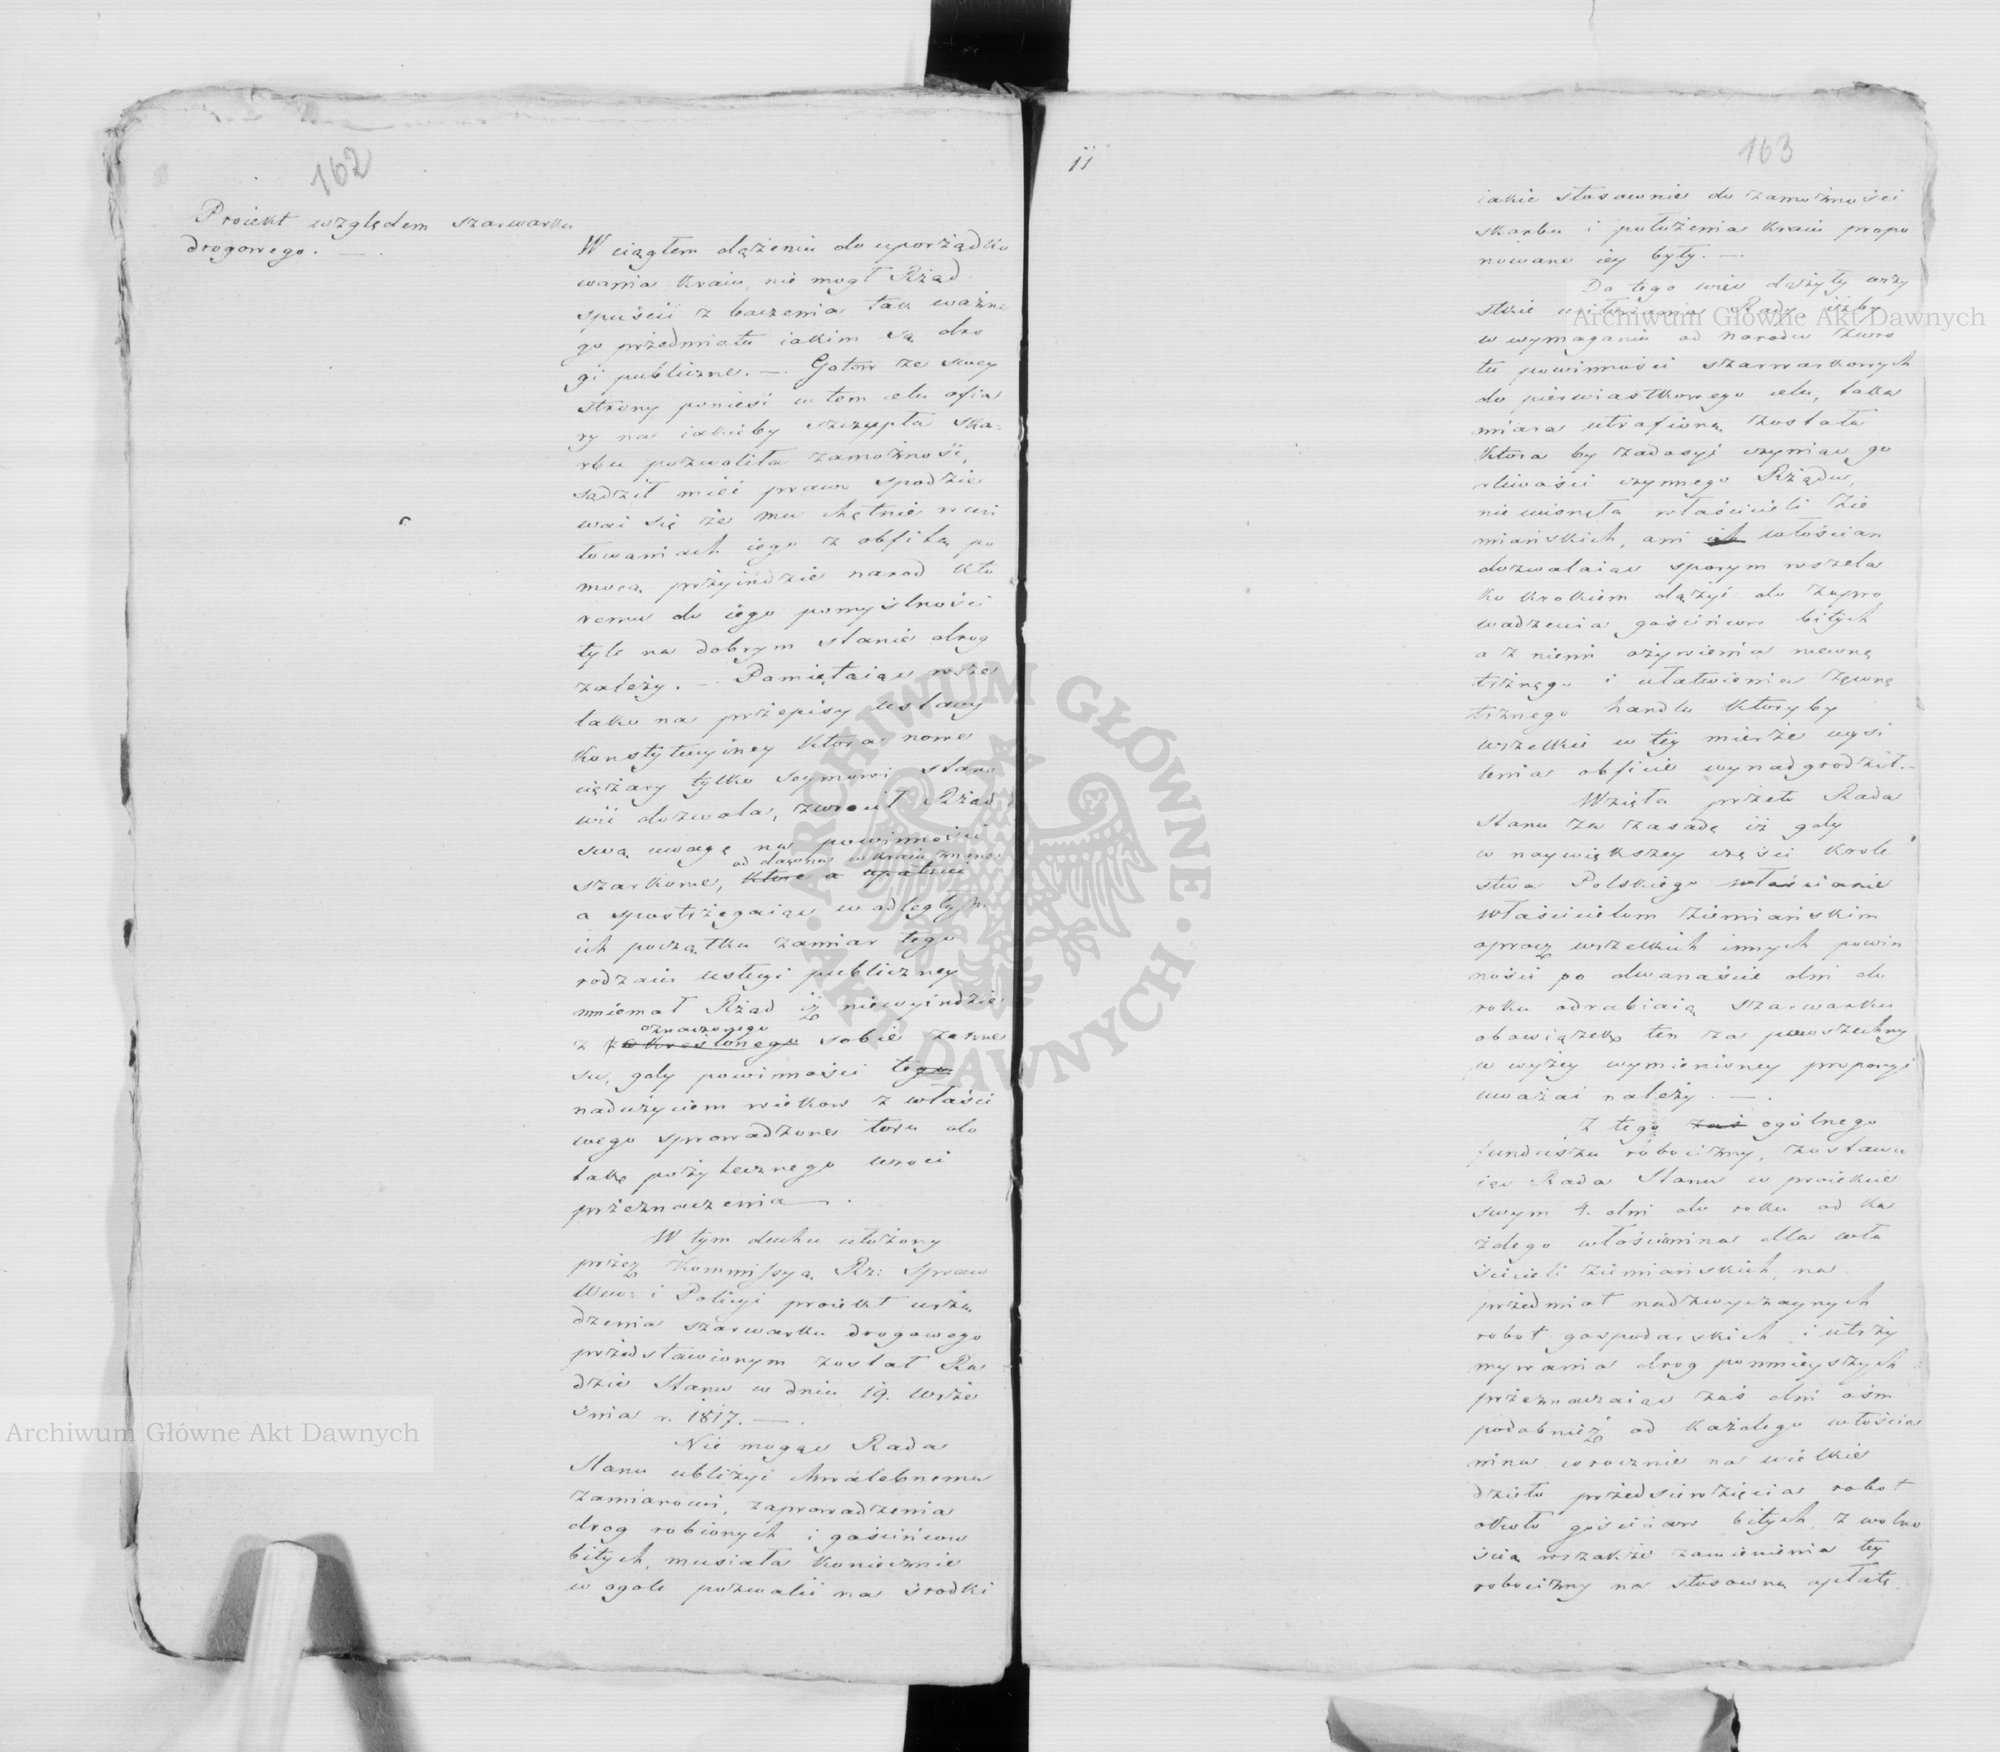 162
Proiekt względem szarwarku
drogowego. —
W ciągłem dążeniu do uporządko
wania Kraiu, nie mogł Rząd
spuścić z baczenia tak ważne
go przedmiotu iakim są dro
gi publiczne. — Gotow ze swey
strony ponieść w tem celu ofia
ry na iakieby szczupła ska-
rbu pozwoliła zamożność,
sądził mieć prawo spodzie
wać się że mu chętnie w usi
łowaniach iego z obfitą po
mocą przyjdzie narod kto
remu do iego pomyślności
tyle na dobrym stanie drog
zależy. — Pamiętaiąc wsze
lako na przepisy Ustawy
Konstytucyiney ktora nowe
ciężary tylko Seymowi stano
wić dozwala, zwrocił Rząd
swą uwagę na powinności
od dawna w Kraiu znane
szarkowe, które a upatruj
a spostrzegaiąc w odległym
ich początku zamiar tego
rodzaiu usługi publiczney
mniemał Rząd iż niewyjndzie
oznaczonego
z zakreślonego sobie zakre
su, gdy powinności tego
nadużyciem wiekow z właści
wego sprowadzone toru do
tak pożytecznego wroci
przeznaczenia —.
W tym duchu ułożony
przez Kommissyą Rz: Spraw
Wew: i Policyi proiekt urzą
dzenia szarwarku drogowego
przedstawionym został Ra
dzie Stanu w dniu 19. Wrze
śnia r. 1817. —.
Nie mogąc Rada
Stanu ubliżyć chwalebnemu
zamiarowi, zaprowadzenia
drog robionych i gościńcow
bitych, musiała koniecznie
w ogole pozwolić na środki
11
163
iakie stosownie do zamożności
skarbu i położenia Kraiu propo
nowane iey były. —
Do tego więc dążyły wszy
stkie usiłowania Rady, iżby
w wymaganiu od narodu zwro
tu powinności szarwarkowych
do pierwiastkowego celu, taka
miara utrafiona została
ktora by zadosyć czyniąc go
rliwości czynnego Rządu,
nie ucisnęła właścicieli zie
miańskich, ani ich włościan
dozwalaiąc sporym wszela
ko krokiem dążyć do zapro
wadzenia gościńcow bitych
a z niemi ożywienia wewnę
trznego i ułatwienia zewnę
trznego handlu któryby
wszelkie w tey mierze wysi
lenia obficie wynadgrodził. —
Wzięła przeto Rada
Stanu za zasadę iż gdy
w naywiększey części Krole
stwa Polskiego włościanie
właścicielom ziemiańskim
oprocz wszelkich innych powin
ności po dwanaście dni do
roku odrabiaią szarwarku
obowiązek ten za powszechny
w wyżey wymienioney proporcyi
uważać należy. —.
Z tego zaś ogólnego
funduszu robocizny, zostawu
iąc Rada Stanu w proiekcie
swym 4. dni do roku od ka
żdego włościanina dla wła
ścicieli ziemiańskich, na
przedmiot nadzwyczaynych
robot gospodarskich i utrzy
mywania drog pomnieyszych
przeznaczaiąc zaś dni ośm
podobnież od każdego włościa
nina corocznie na wielkie
dzieło przedsiewzięcia robot
około gościńcow bitych, z wolno
ścią wszakże zamienienia tey
robocizny na stosowną opłatę.
Archiwum Główne Akt Dawnych
Archiwum Główne Akt Dawnych
ARCHIWUM GŁÓWNE · AKT DAWNYCH ·